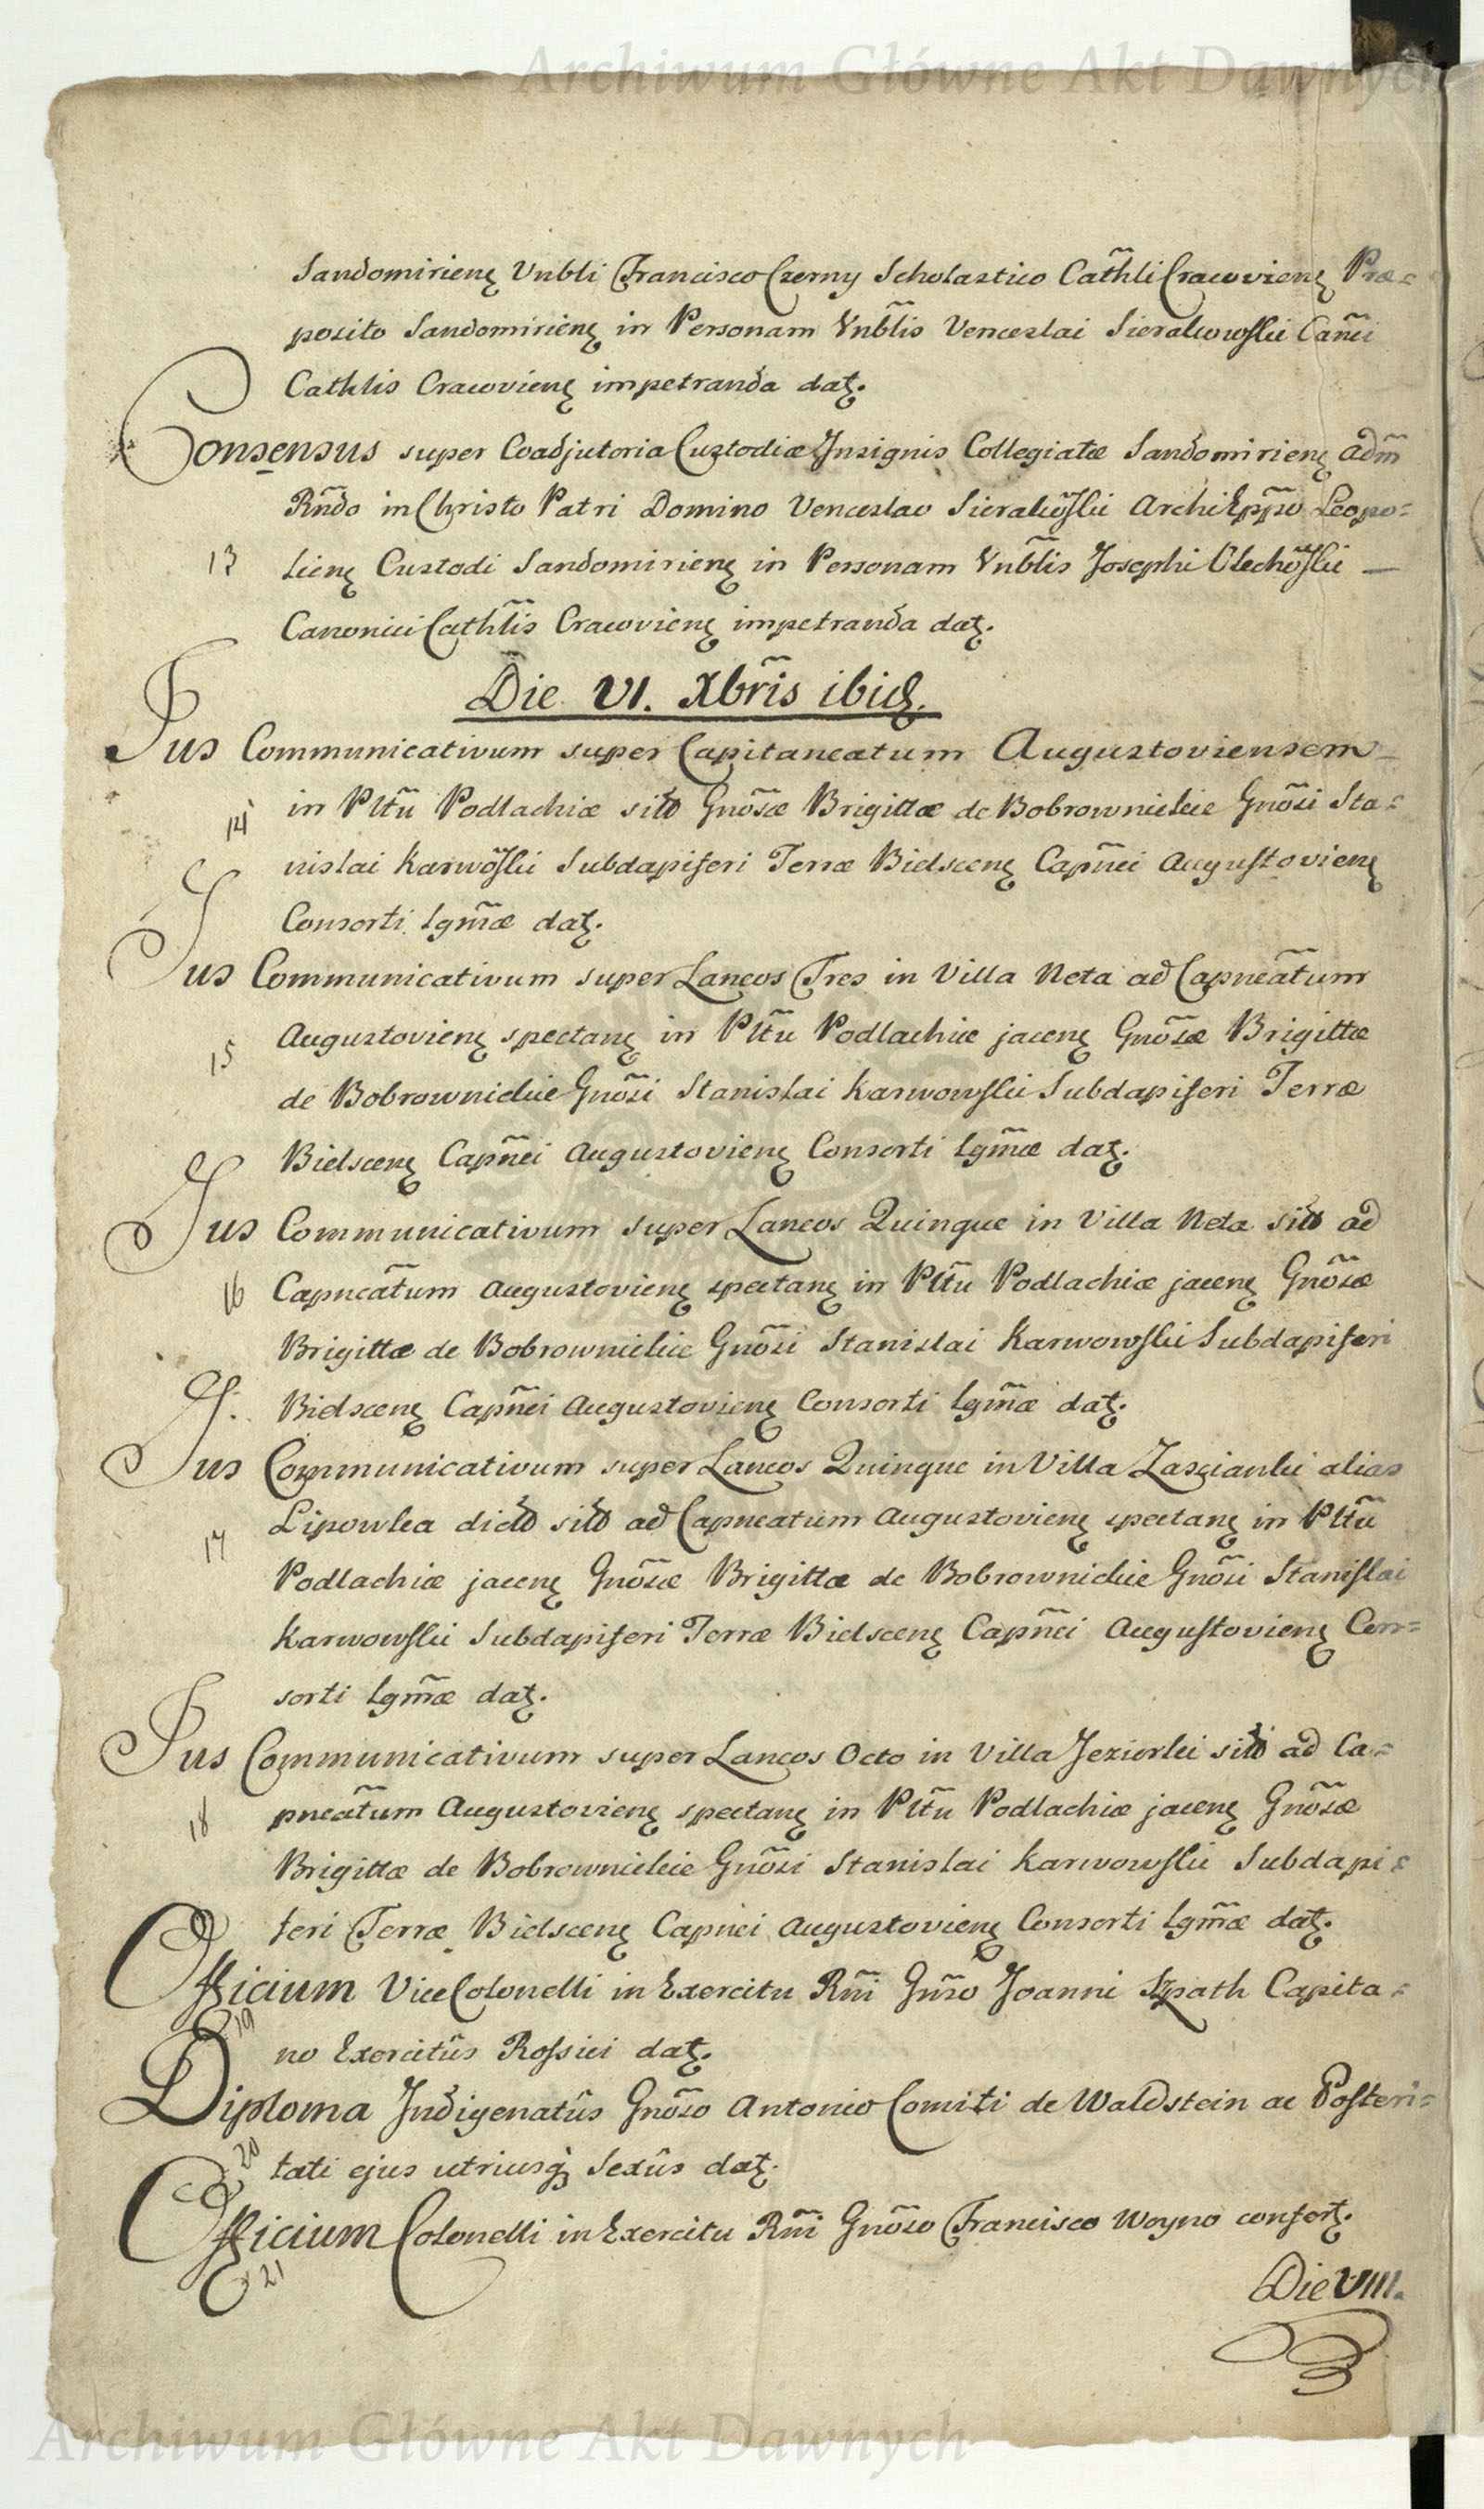 Archiwum Główne Akt Dawnych
Sandomirienꝫ Vnbli Francisco Czerny Scholastico Cath̃li Cracovienꝫ Præ=
posito Sandomirienꝫ in Personam Vnb̃lis Venceslai Sierakowskii Cañci
Cathlis Cracovienꝫ impetranda datꝫ.
Consensus super Coadjutoria Custodiæ Insignis Collegiatæ Sandomirienꝫ adm̃
Rñdo in Christo Patri Domino Venceslao Sierakow̃skii Archi Epp̃o Leopo=
13 lienꝫ Custodi Sandomirienꝫ in Personam Vnb̃lis Josephi Olechow̃skii —
Canonici Cath̃lis Cracovienꝫ impetranda datꝫ.
Die VI. Xbr̃is ibidꝫ.
Jus Communicativum super Capitaneatum Augustoviensem
14 in Pltũ Podlachiæ sittõ Gnõsæ Brigittæ de Bobrownickie Gnõsi Sta=
nislai Karwow̃skii Subdapiferi Terræ Bielscenꝫ Capñei Augustovienꝫ
Consorti lgm̃æ datꝫ.
Jus Communicativum super Laneos Tres in Villa Neta ad Capneãtum
15 Augustovienꝫ spectanꝫ in Pltũ Podlachiæ jacenꝫ Gnõsæ Brigittæ
de Bobrownickie Gnõsi Stanislai Karwowskii Subdapiferi Terræ
Bielscenꝫ Capñei Augustovienꝫ Consorti lgm̃æ datꝫ.
Jus Communicativum super Laneos Quinque in Villa Neta sittõ ad
16 Capneãtum Augustovienꝫ spectanꝫ in Pltũ Podlachiæ jacenꝫ Gnõsæ
Brigittæ de Bobrownickie Gnõsi Stanislai Karwowskii Subdapiferi
Bielscenꝫ Capñei Augustovienꝫ Consorti lgm̃æ datꝫ.
Jus Communicativum super Laneos Quinque in Villa Zascianki alias
17 Lipowka dictõ sittõ ad Capneatum Augustovienꝫ spectanꝫ in Pltũ
Podlachiæ jacenꝫ Gnõsæ Brigittæ de Bobrownickie Gnõsi Stanislai
Karwowskii Subdapiferi Terræ Bielscenꝫ Capñei Augustovienꝫ Con=
sorti lgm̃æ datꝫ.
Jus Communicativum super Laneos Octo in Villa Jeziorki sittõ ad Ca=
18 pneãtum Augustovienꝫ spectanꝫ in Pltũ Podlachiæ jacenꝫ Gnõsæ
Brigittæ de Bobrownickie Gnõsi Stanislai Karwowskii Subdapi=
feri Terræ Bielscenꝫ Capñei Augustovienꝫ Consorti lgm̃æ datꝫ.
Officium ViceColonelli in Exercitu Rñi Gnr̃o Joanni Szpath Capita=
19 no Exercitûs Rossici datꝫ.
Diploma Indigenatûs Gnõso Antonio Comiti de Waldstein ac Posteri=
20 tati ejus utriusqꝫ Sexûs datꝫ.
Officium Colonelli in Exercitu Rñi Gnõso Francisco Woyno confertꝫ.
21
Die VIII.
Archiwum Główne Akt Dawnych